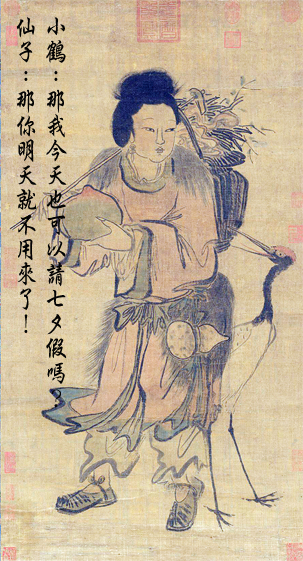 小鶴：那我今天也可以請七夕假嗎？
仙子：那你明天就不用來了！